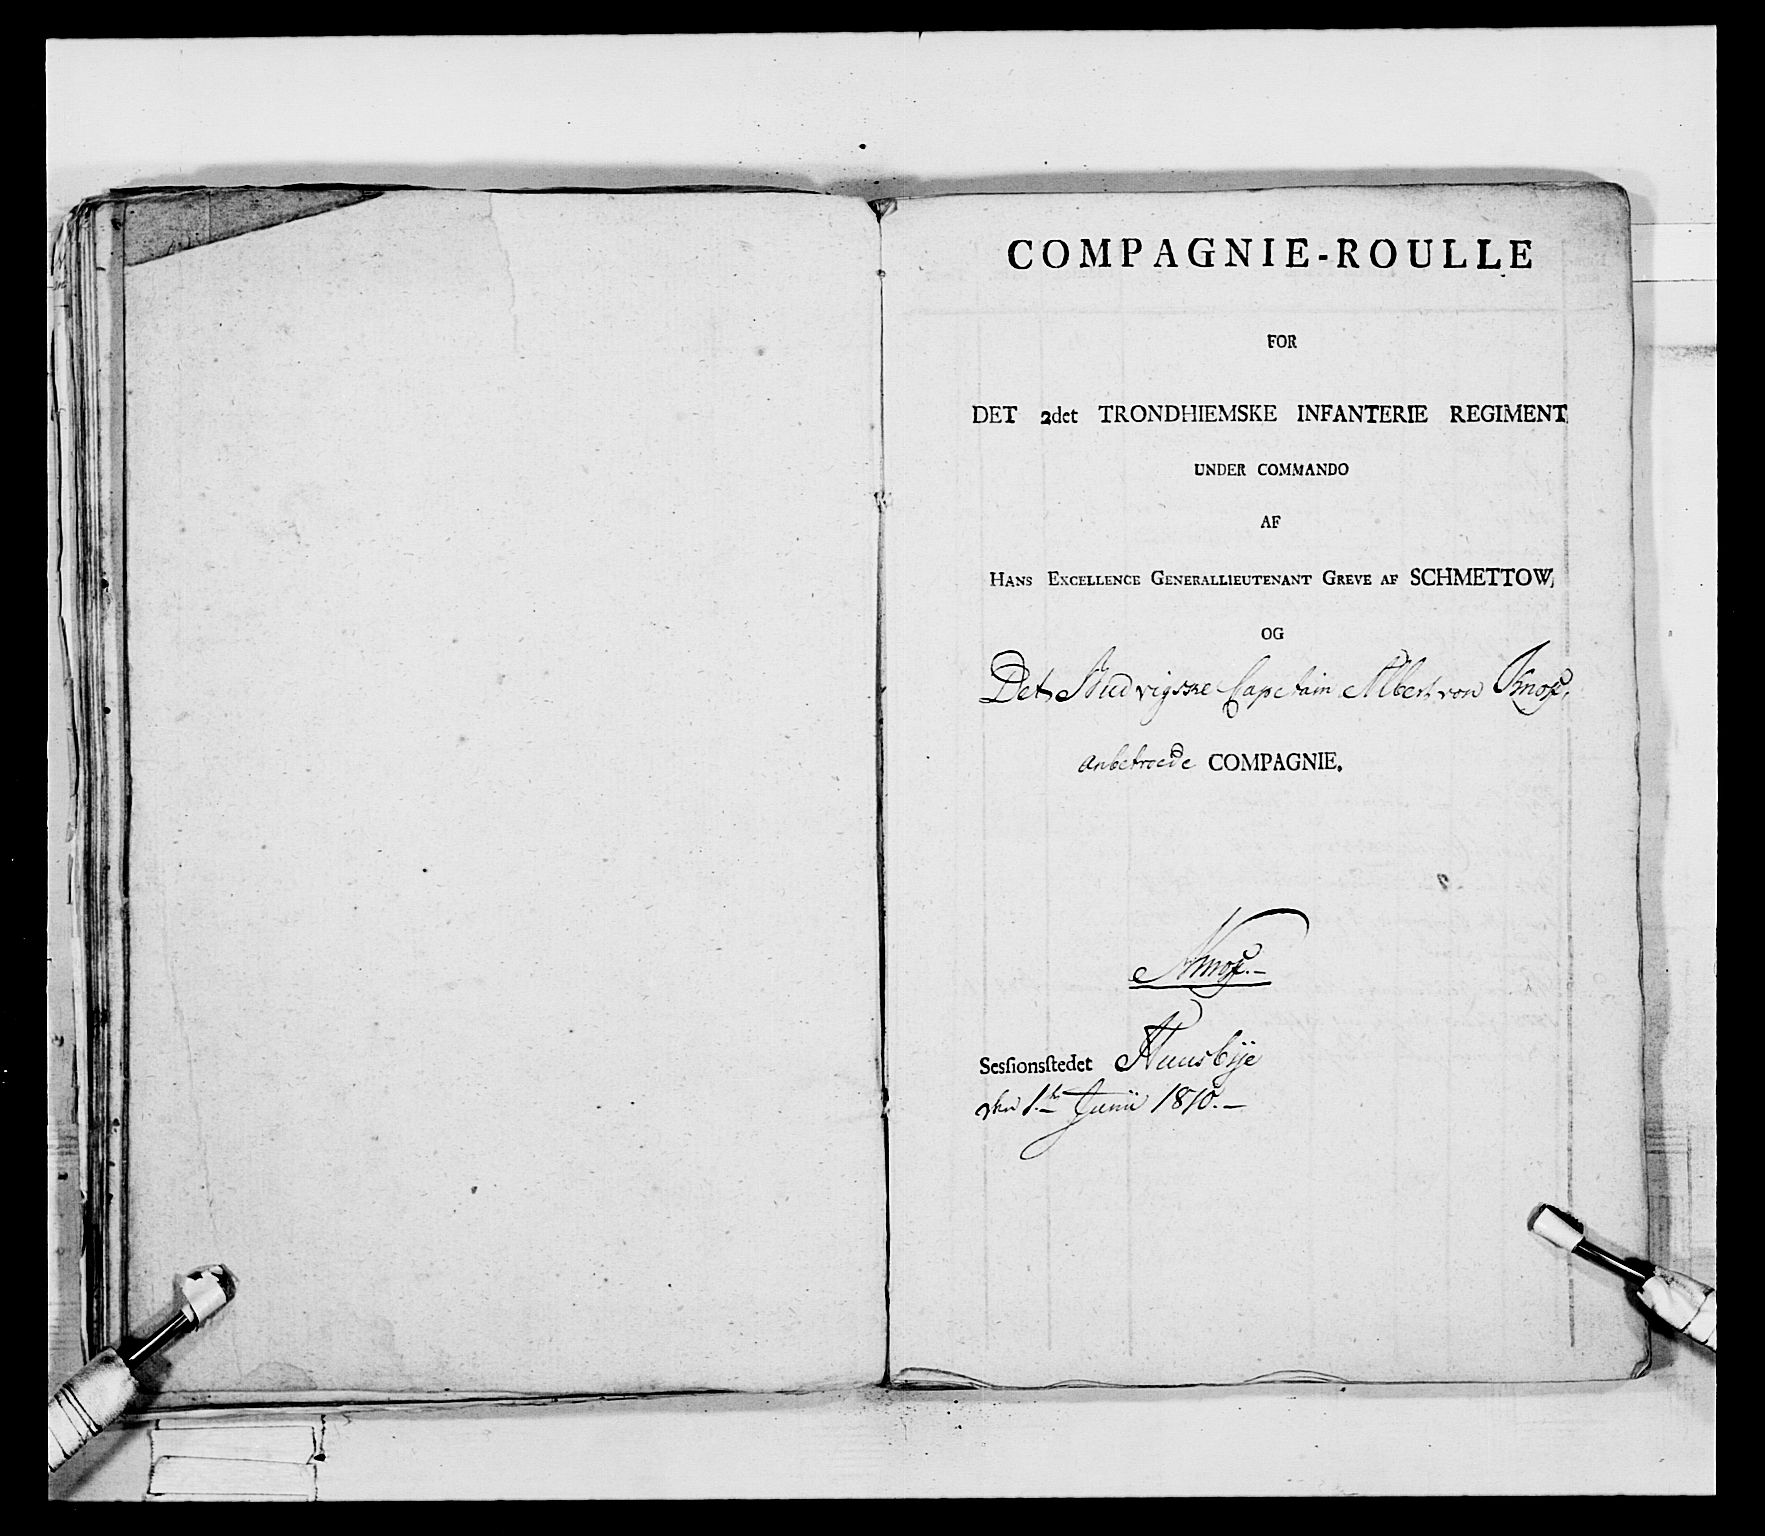 COMPAGNIE-ROULLE
FOR
DET 2det TRONDHIEMSKE INFANTERIE REGIMENT
UNDER COMMANDO
AF
HANS EXCELLENCE GENERALLIEUTENANT GREVE AF SCHMETTOW,
OG
Det Captain Albert von Knoff,
anbetroede COMPAGNIE.
Knoff.–
Sesſionsſtedet Huusbÿe
den 1.te Junii 1810.–